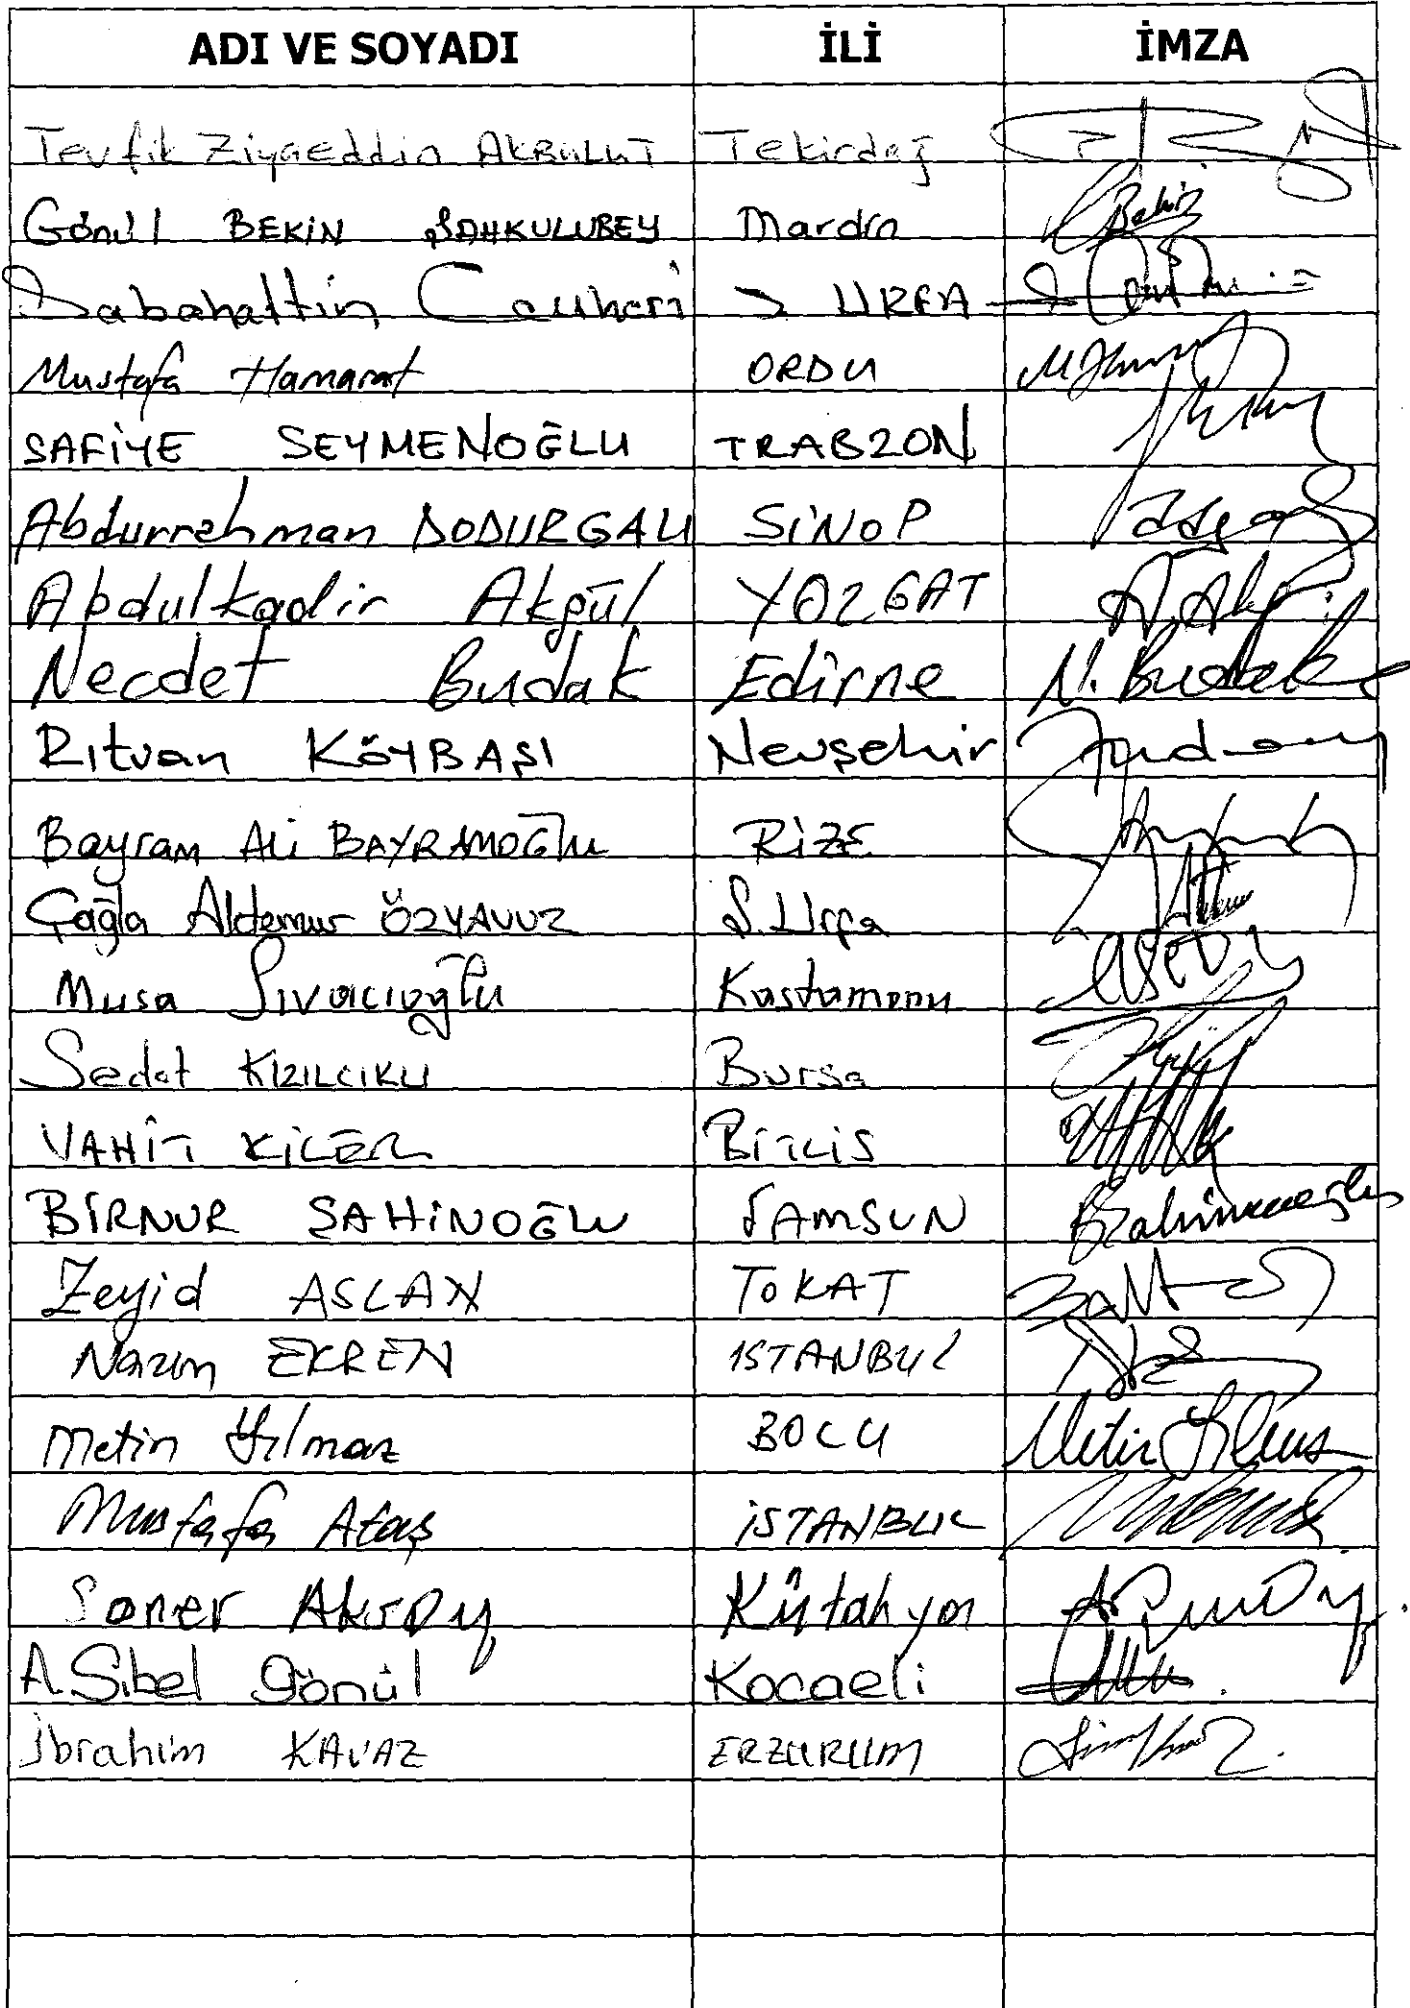 ADI VE SOYADI İLİ İMZA
Tevfik Ziyaeddin AKBULUT Tekirdağ
Gönül BEKİN ŞAHKULUBEY Mardin Bekin
Sabahattin Cevheri Ş URFA
Mustafa Hamarat ORDU
SAFİYE SEYMENOĞLU TRABZON
Abdurrahman DODURGALI SİNOP
Abdulkadir Akgül YOZGAT A. Akgül
Necdet Budak Edirne N. Budak
Rıtvan KÖYBAŞI Nevşehir
Bayram Ali BAYRAMOĞLU RİZE
Çağla Aldemir ÖZYAVUZ Ş.Urfa
Musa Sıvacıoğlu Kastamonu
Sedat KIZILCIKLI Bursa
VAHİT KİLER BİTLİS
BİRNUR ŞAHİNOĞLU SAMSUN BŞahinoğlu
Zeyid ASLAN TOKAT
Nazım EKREN ISTANBUL
Metin Yılmaz BOLU Metin Yılmaz
Mustafa Ataş İSTANBUL
Soner Aksoy Kütahya
A. Sibel Gönül Kocaeli
İbrahim KAVAZ ERZURUM